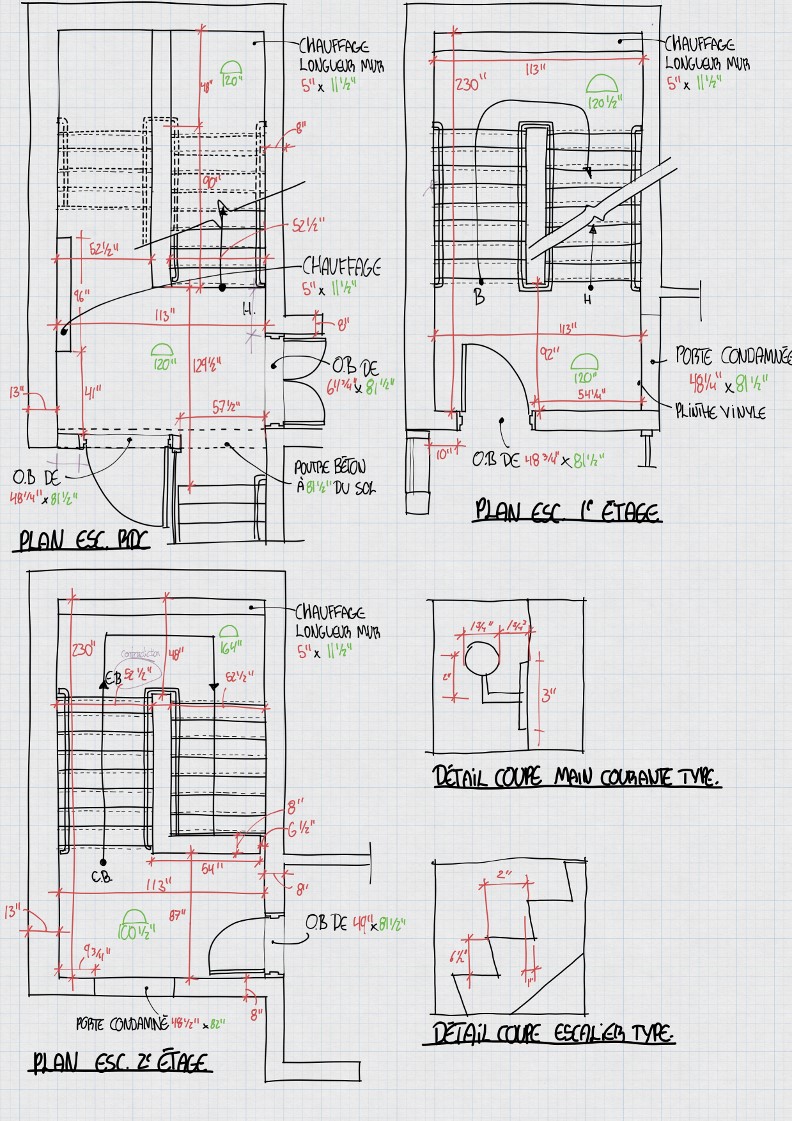 CHAUFFAGE
LONGUEUR MUR
5" x 11 1/2"
120"
48"
8"
90"
52 1/2"
52 1/2"
CHAUFFAGE
5" x 11 1/2"
H.
96"
113"
8"
120"
129 1/2"
O.B DE
61 3/4" x 81 1/2"
13"
41"
57 1/2"
O.B DE
48 1/4" x 81 1/2"
POUTRE BÉTON
À 81 1/2" DU SOL
PLAN ESC. RDC
CHAUFFAGE
LONGUEUR MUR
5" x 11 1/2"
113"
230"
120 1/2"
B
H
113"
92"
120"
54 1/4"
PORTE CONDAMNÉE
48 1/4" x 81 1/2"
PLINTHE VINYLE
10"
O.B DE 48 3/4" x 81 1/2"
PLAN ESC. 1e ÉTAGE
CHAUFFAGE
LONGUEUR MUR
5" x 11 1/2"
230"
48"
164"
E.B
52 1/2"
52 1/2"
8"
6 1/2"
C.B
54"
113"
8"
13"
87"
100 1/2"
O.B DE 49" x 81 1/2"
9 3/4"
8"
PORTE CONDAMNÉ 48 1/2" x 82"
PLAN ESC. 2e ÉTAGE
1 3/4"
1 3/4"
2"
3"
DÉTAIL COUPE MAIN COURANTE TYPE.
2"
6 1/2"
1"
DÉTAIL COUPE ESCALIER TYPE.